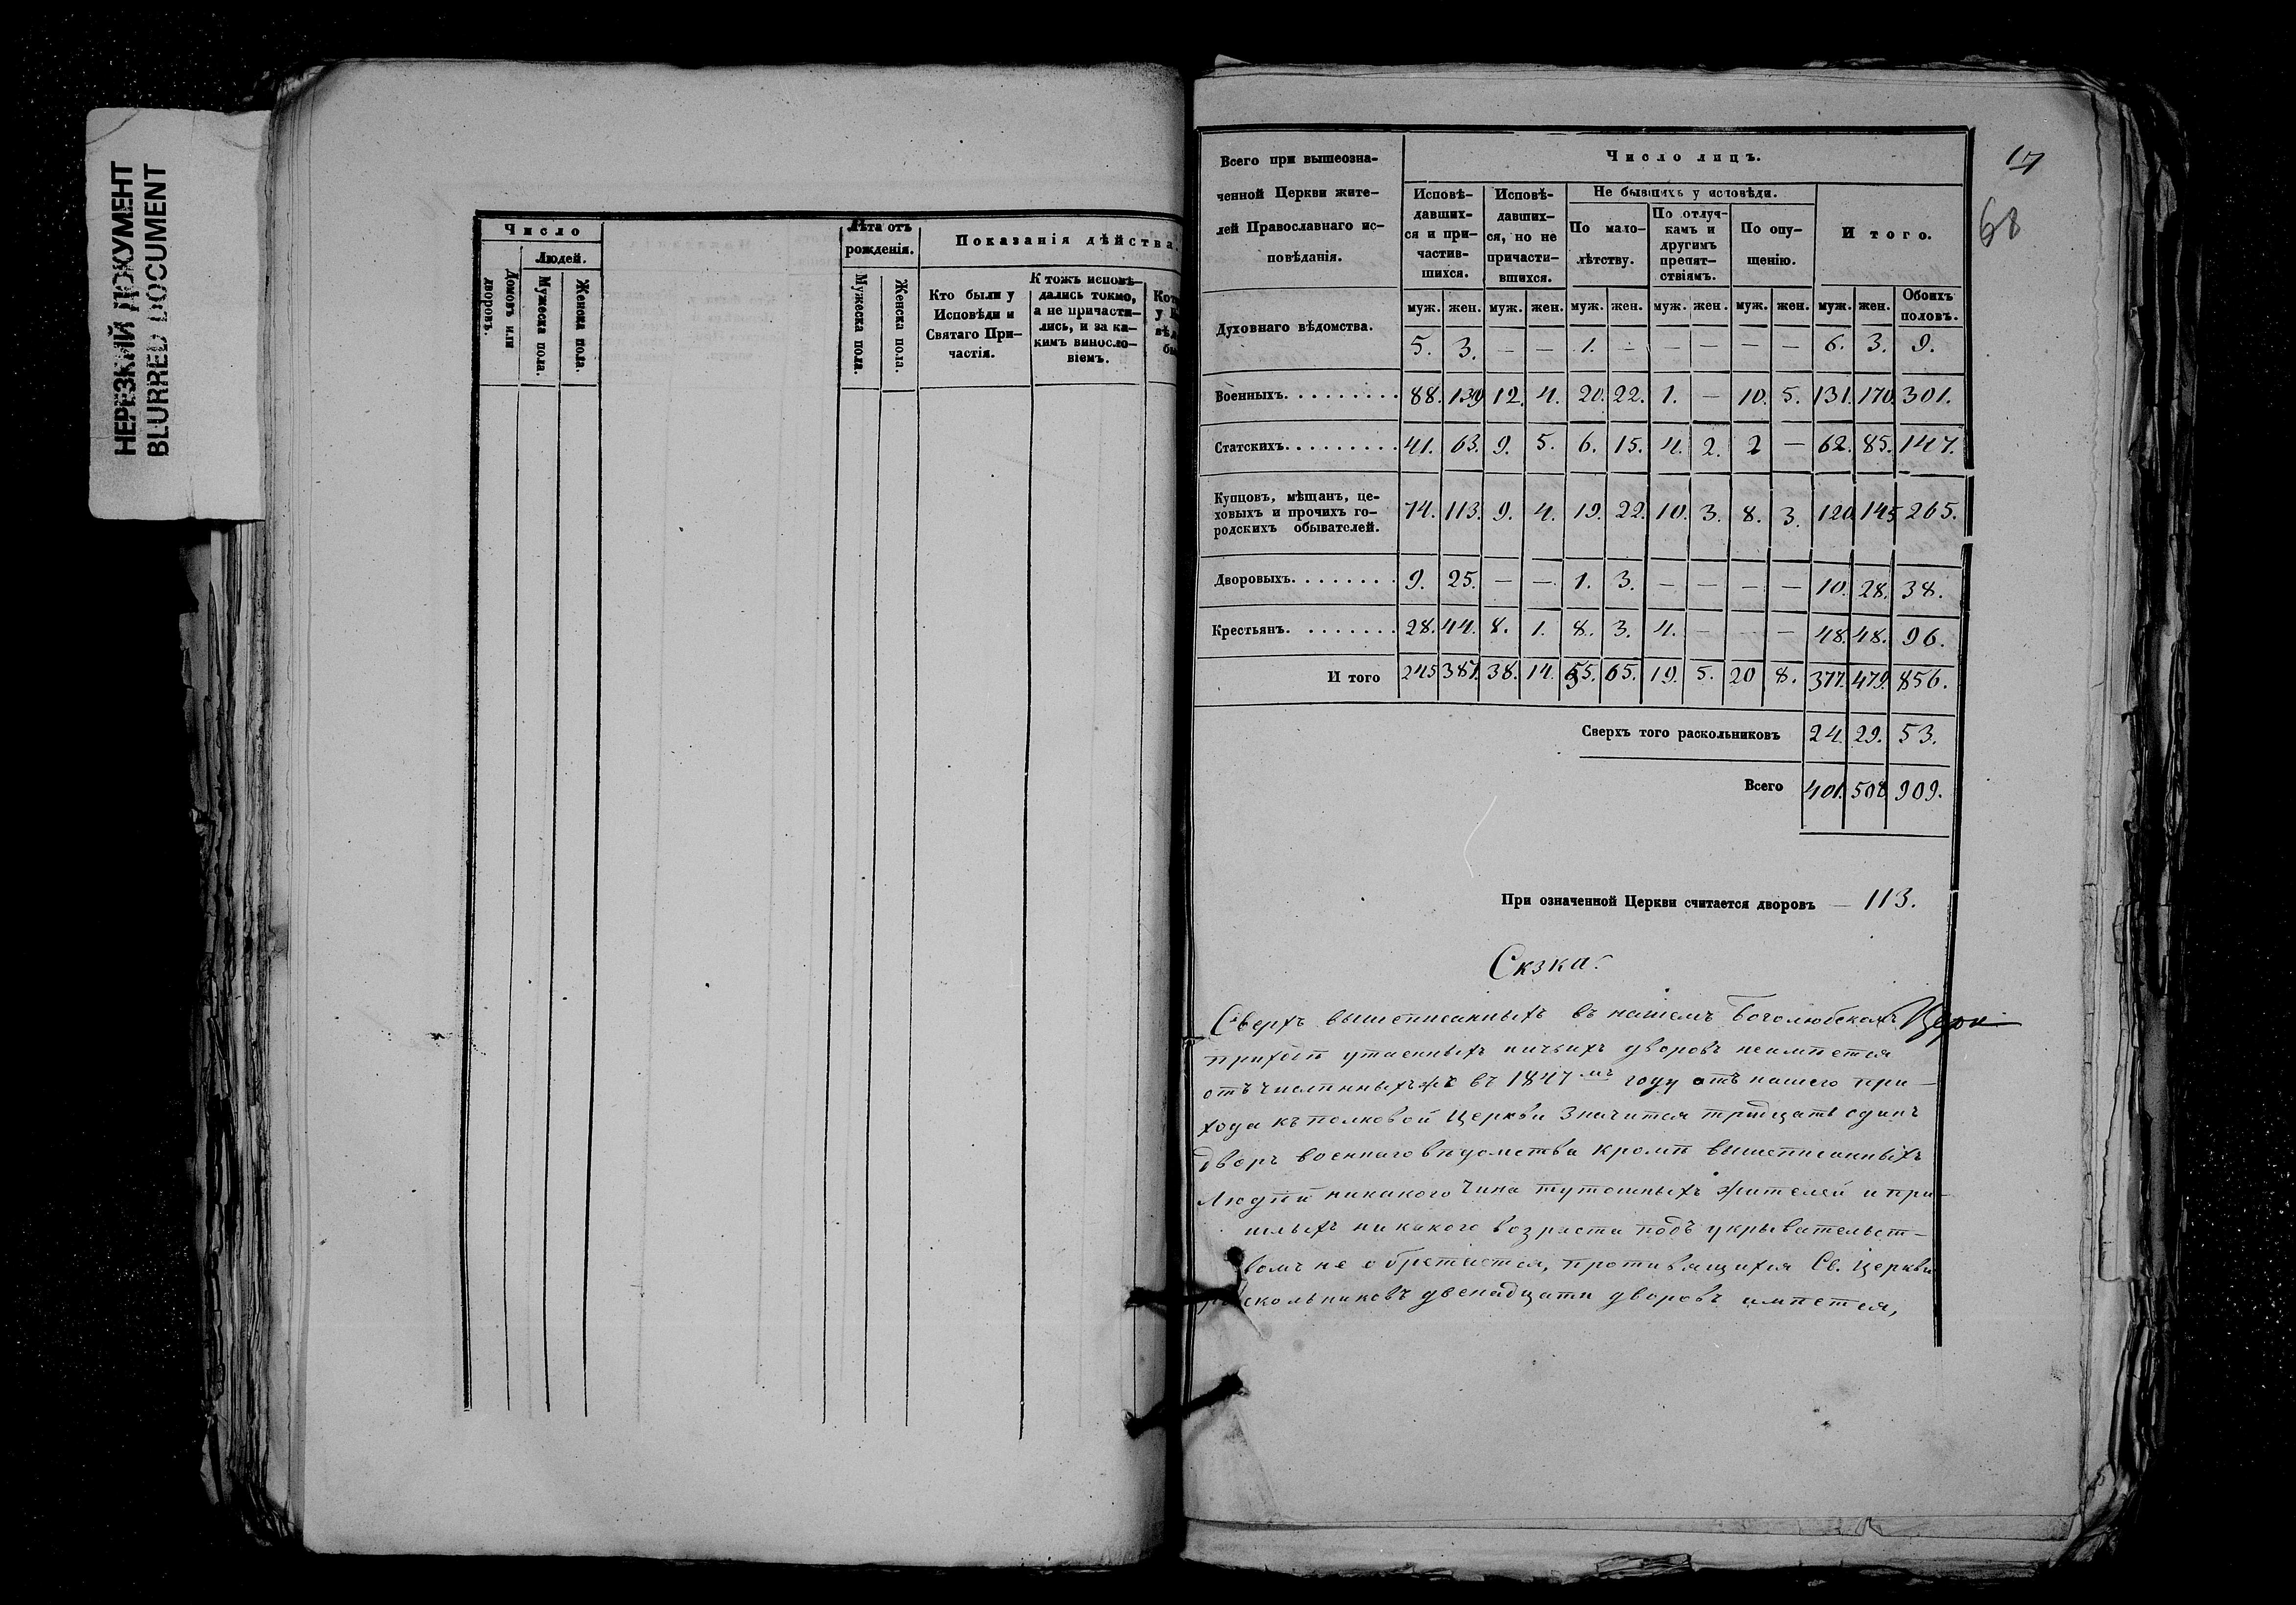 НЕРЕЗКИЙ ДОКУМЕНТ
BLURRED DOCUMENT
Число
Людей.
Домовъ или дворовъ.
Мужеска пола.
Женска пола.
Лѣта отъ рожденія.
Мужеска пола.
Женска пола.
Показанія дѣйства.
Кто были у
Исповѣди и
Святаго При-
частія.
К тожъ исповѣ-
дались токмо,
а не причасти-
лись, и за ка-
кимъ винosло-
віемъ.
17
68
Всего при вышеозна-
ченной Церкви жите-
лей Православнаго ис-
повѣданія.
Число лицъ.
Исповѣ-
давших-
ся и при-
частив-
шихся.
Исповѣ-
давших-
ся, но не
причасти-
вшихся.
Не бывшихъ у исповѣди.
По мало-
лѣтству.
По отлуч-
камъ и
другимъ
препят-
ствіямъ.
По опу-
щенію.
Итого.
муж. жен. муж. жен. муж. жен. муж. жен. муж. жен. муж. жен. Обоихъ половъ.
Духовнаго вѣдомства. 5. 3. — — 1. — — — — — 6. 3. 9.
Военныхъ. 88. 139 12. 4. 20. 22. 1. — 10. 5. 131. 170. 301.
Статскихъ. 41. 63. 9. 5. 6. 15. 4. 2. 2 — 62. 85. 147.
Купцовъ, мѣщанъ, це-
ховыхъ и прочихъ го-
родскихъ обывателей. 74. 113. 9. 4. 19. 22. 10. 3. 8. 3. 120. 145 265.
Дворовыхъ. 9. 25. — — 1. 3. — — — — 10. 28. 38.
Крестьянъ. 28. 44. 8. 1. 8. 3. 4. — — — 48. 48. 96.
И того 245 387. 38. 14. 55. 65. 19. 5. 20 8. 377. 479. 856.
Сверхъ того раскольниковъ 24. 29. 53.
Всего 401. 508 909.
При означенной Церкви считается дворовъ — 113.
Сказка.
Сверхъ вышеписанныхъ въ нашемъ Боголюбской Церк
приходѣ утаенныхъ ничьихъ дворовъ неимѣется
отъчисленныхъ же въ 1847мъ году отъ нашего при-
хода къ полковой Церкви значится тридцать одинъ
дворъ военнаго вѣдомства кромѣ вышеписанныхъ
людѣй никакого чина тутошныхъ жителей и при-
шлыхъ никакого возраста подъ укрывательст-
вомъ не обретается, противящихся Св. Церкви
раскольниковъ двенадцати дворовъ имѣется,